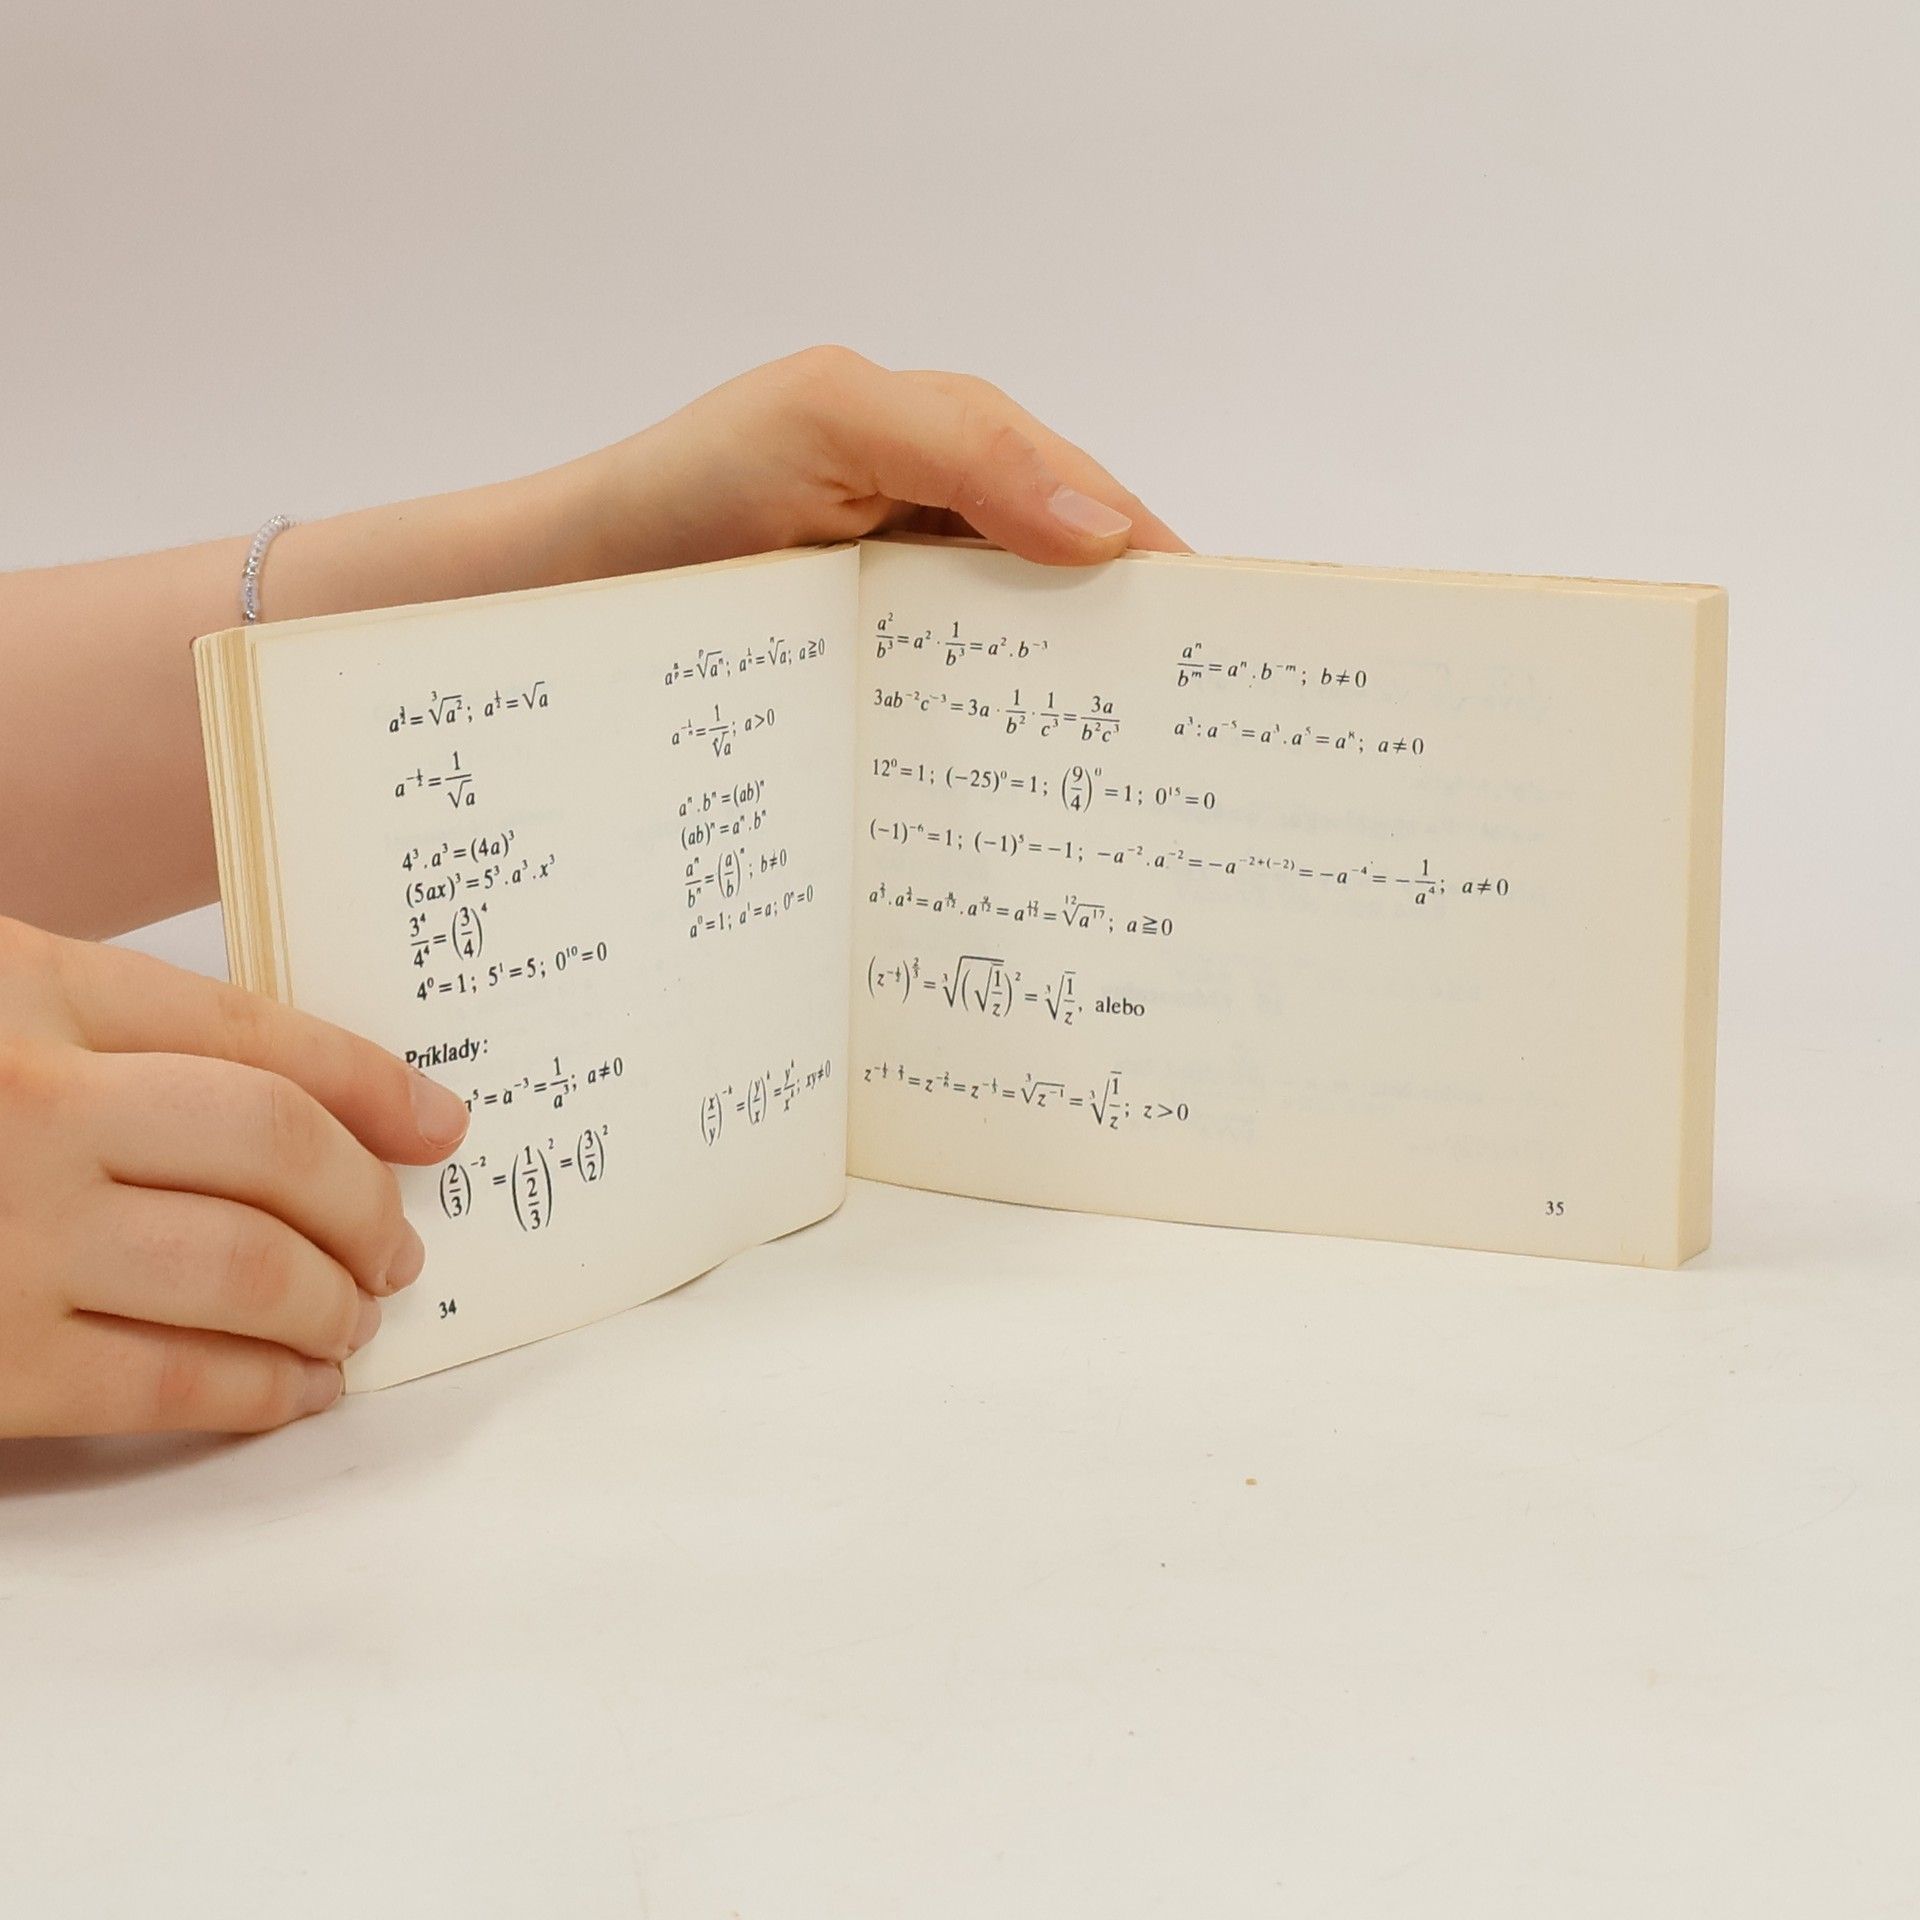 a^{2/3} = ∛a²; a^{1/2} = √a
a^{n/p} = ᵖ√aⁿ; a^{1/n} = ⁿ√a; a ≧ 0
a^{-1/2} = 1/√a
a^{-1/n} = 1/ⁿ√a; a > 0
4³ . a³ = (4a)³
aⁿ . bⁿ = (ab)ⁿ
(5ax)³ = 5³ . a³ . x³
(ab)ⁿ = aⁿ . bⁿ
3⁴/4⁴ = (3/4)⁴
aⁿ/bⁿ = (a/b)ⁿ; b ≠ 0
4⁰ = 1; 5¹ = 5; 0¹⁰ = 0
a⁰ = 1; a¹ = a; 0ⁿ = 0
Príklady:
⁵ = a⁻³ = 1/a³; a ≠ 0
(2/3)⁻² = (1/(2/3))² = (3/2)²
(x/y)^{-k} = (y/x)^k = y^k/x^k; xy ≠ 0
34
a²/b³ = a² · 1/b³ = a² . b⁻³
aⁿ/bᵐ = aⁿ . b⁻ᵐ; b ≠ 0
3ab⁻²c⁻³ = 3a · 1/b² · 1/c³ = 3a/b²c³
a³ : a⁻⁵ = a³ . a⁵ = a⁸; a ≠ 0
12⁰ = 1; (−25)⁰ = 1; (9/4)⁰ = 1; 0¹⁵ = 0
(−1)⁻⁶ = 1; (−1)⁵ = −1; −a⁻² . a⁻² = −a^{−2+(−2)} = −a⁻⁴ = −1/a⁴; a ≠ 0
a^{2/3} . a^{3/4} = a^{8/12} . a^{9/12} = a^{17/12} = ¹²√a¹⁷; a ≧ 0
(z^{-1/2})^{2/3} = ∛(√(1/z))² = ∛(1/z), alebo
z^{-1/2 · 2/3} = z^{-2/6} = z^{-1/3} = ∛z⁻¹ = ∛(1/z); z > 0
35